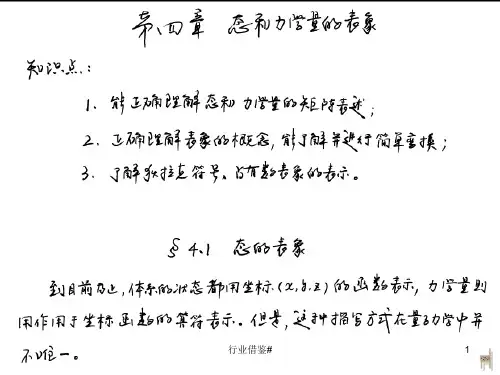 第四章 态和力学量的表象
知识点:
1、能正确理解态和力学量的矩阵表述;
2、正确理解表象的概念,能了解并进行简单变换;
3、了解狄拉克符号、占有数表象的表示。
§4.1 态的表象
到目前为止,体系的状态都用坐标(x,y,z)的函数表示,力学量则
用作用于坐标函数的算符表示。但是,这种描写方式在量子力学中并
不唯一。
行业借鉴# 1